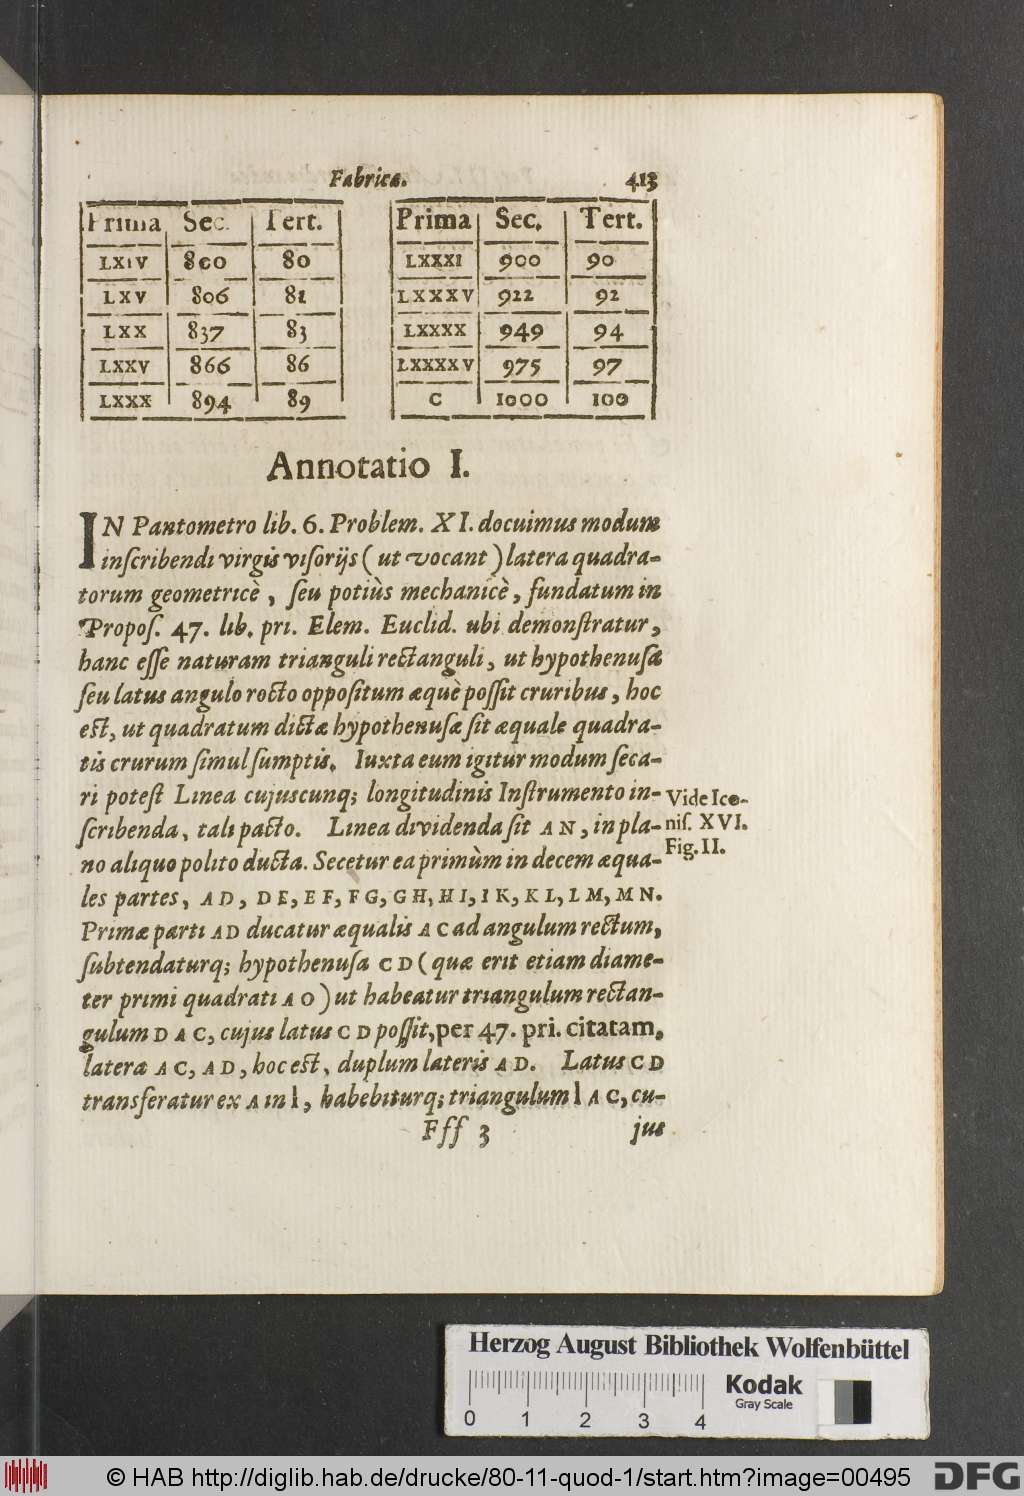 Fabricæ. 413
Prima Sec. Tert.
LXIV 800 80
LXV 806 81
LXX 837 83
LXXV 866 86
LXXX 894 89
Prima Sec. Tert.
LXXXI 900 90
LXXXV 922 92
LXXXX 949 94
LXXXXV 975 97
C 1000 100
Annotatio I.
IN Pantometro lib. 6. Problem. XI. docuimus modum
inſcribendi virgis viſorijs ( ut vocant ) latera quadra-
torum geometricè, ſeu potiùs mechanicè, fundatum in
Propoſ. 47. lib. pri. Elem. Euclid. ubi demonſtratur,
hanc eſſe naturam trianguli rectanguli, ut hypothenuſa
ſeu latus angulo rocto oppoſitum æquè poſſit cruribus, hoc
est, ut quadratum dictæ hypothenuſæ ſit æquale quadra-
tis crurum ſimul ſumptis. Iuxta eum igitur modum ſeca-
ri poteſt Linea cujuscunq; longitudinis Inſtrumento in-
ſcribenda, tali pacto. Linea dividenda ſit AN, in pla-
no aliquo polito ducta. Secetur ea primùm in decem æqua-
les partes, AD, DE, EF, FG, GH, HI, IK, KL, LM, MN.
Primæ parti AD ducatur æqualis AC ad angulum rectum,
ſubtendaturq; hypothenuſa CD ( quæ erit etiam diame-
ter primi quadrati AO ) ut habeatur triangulum rectan-
gulum DAC, cujus latus CD poſſit, per 47. pri. citatam,
latera AC, AD, hoc est, duplum lateris AD. Latus CD
transferatur ex A in l, habebiturq; triangulum l AC, cu-
Fff 3 jus
Vide Ico-
niſ. XVI.
Fig. II.
Herzog August Bibliothek Wolfenbüttel
0 1 2 3 4
Kodak
Gray Scale
© HAB http://diglib.hab.de/drucke/80-11-quod-1/start.htm?image=00495
DFG